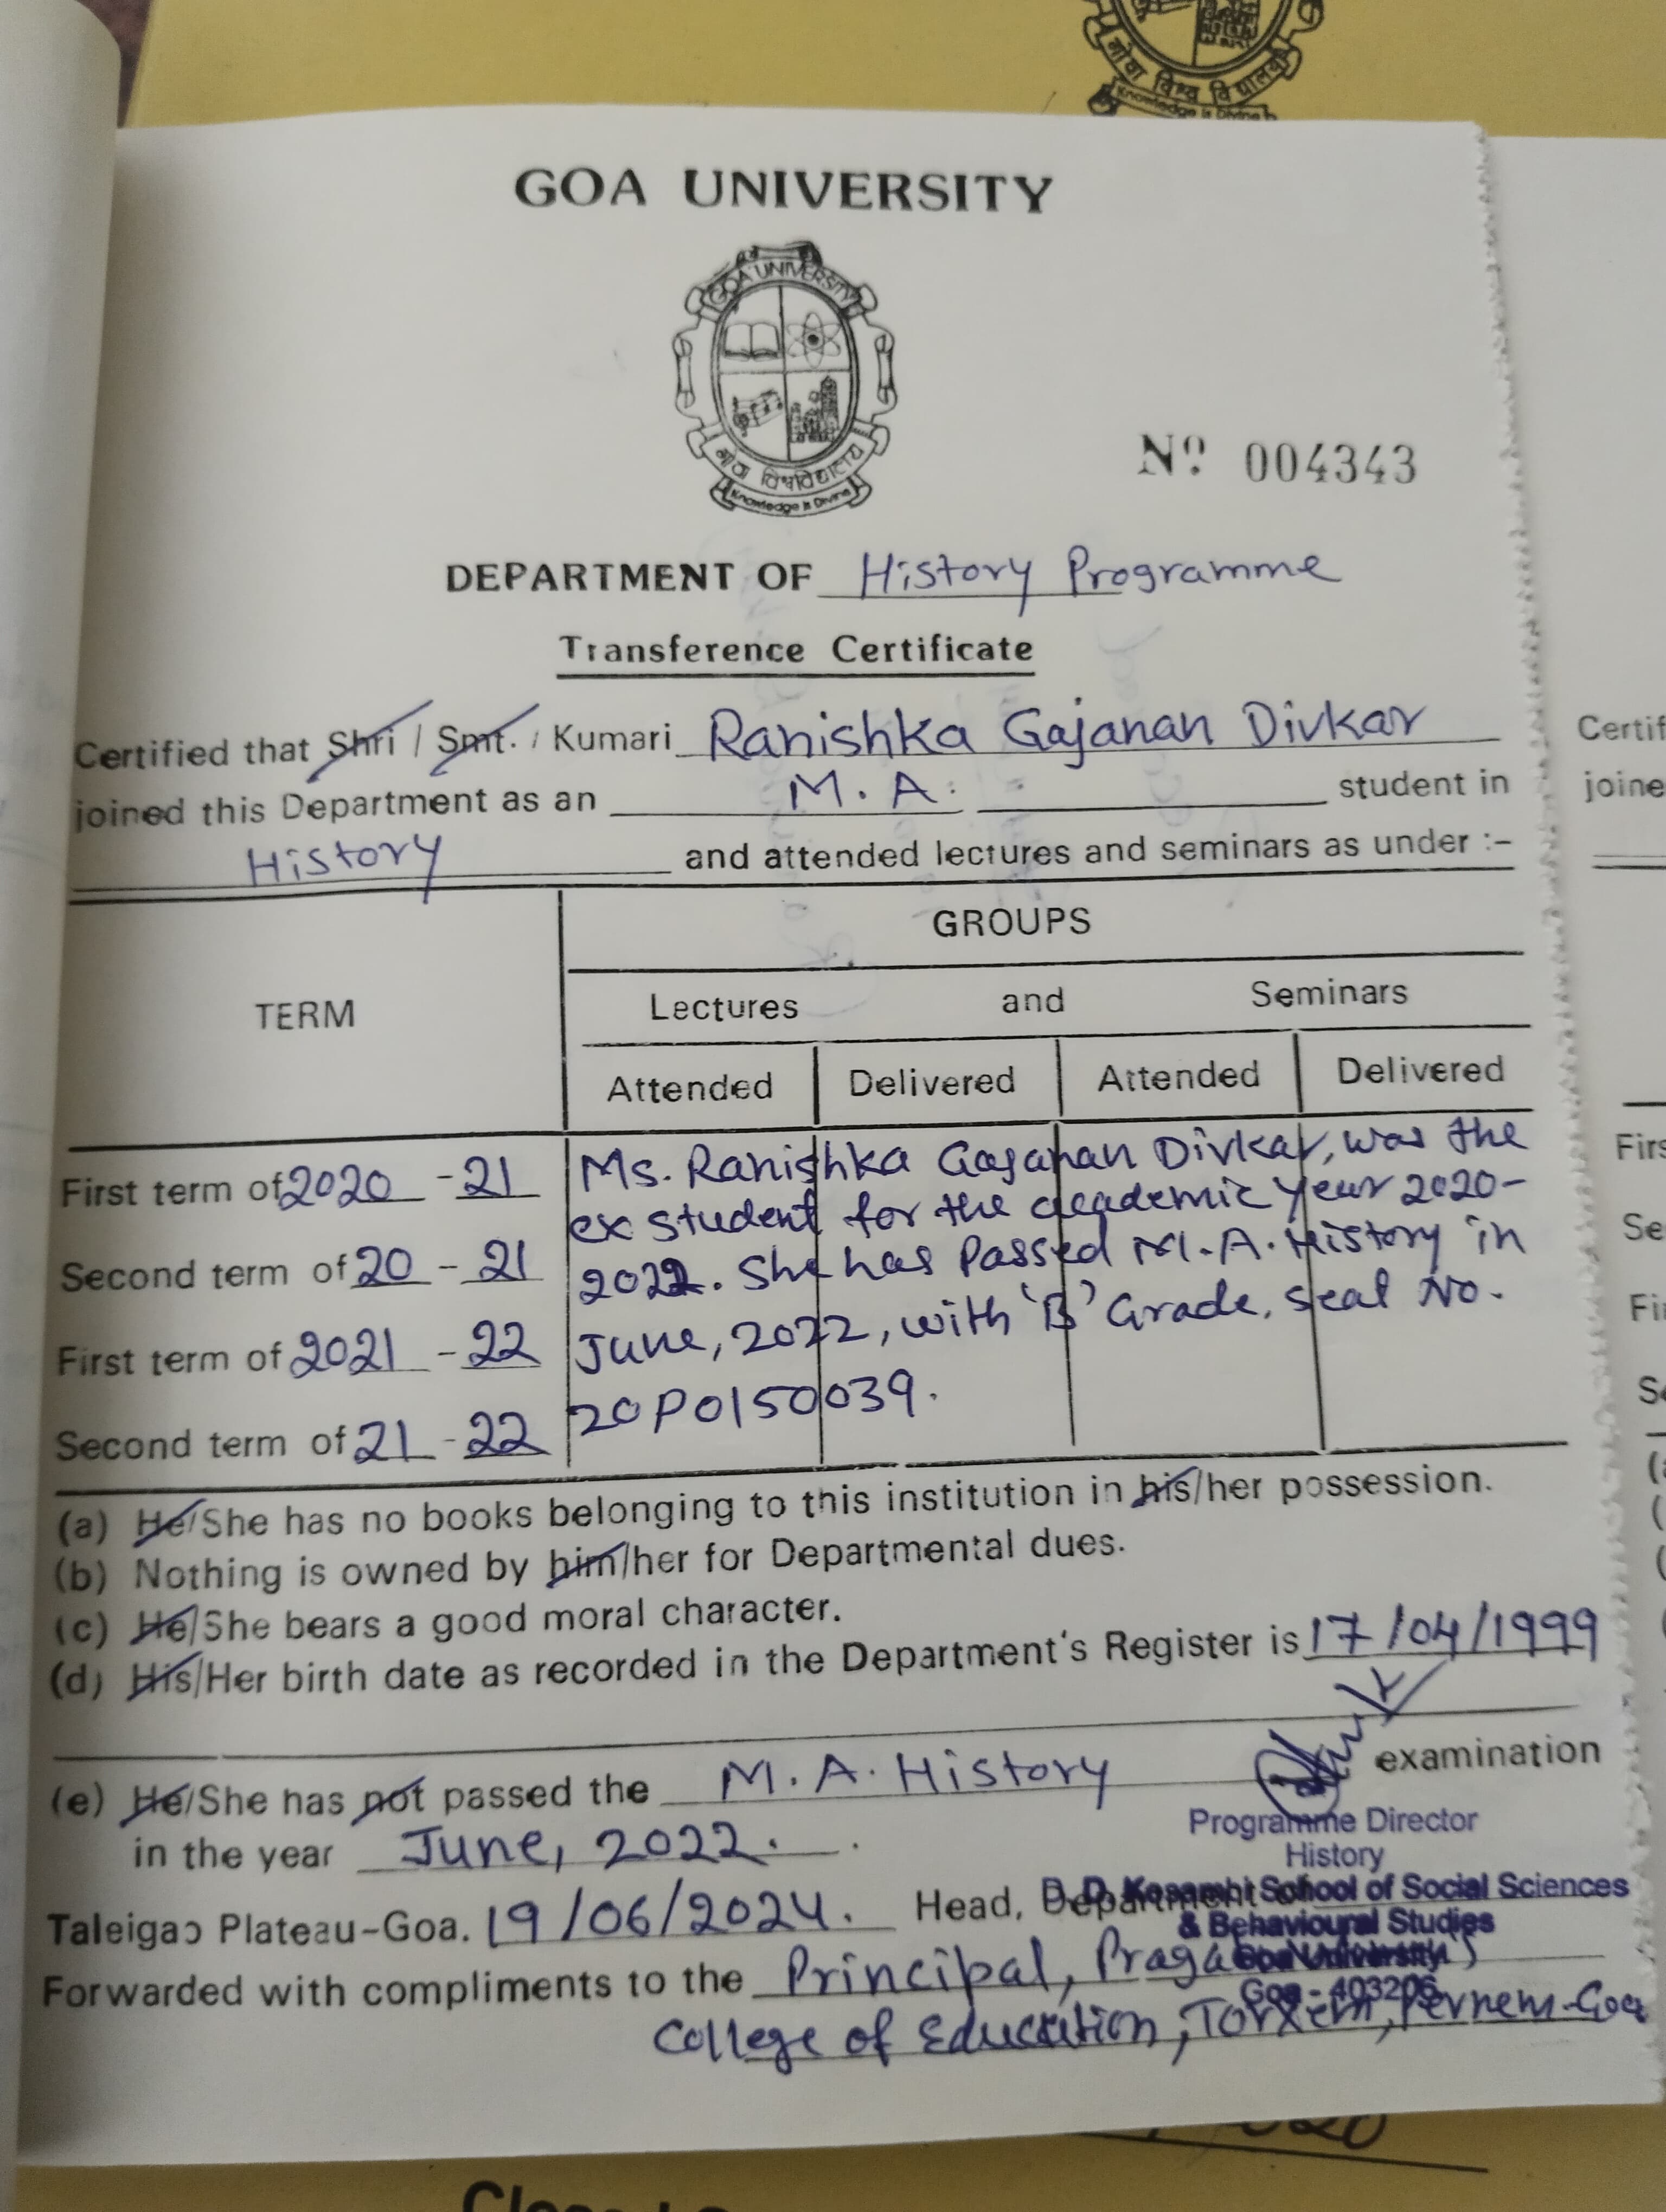 गोवा विश्व विद्यालय
Knowledge is Divine
GOA UNIVERSITY
GOA UNIVERSITY
गोंय विश्वविद्यालय
Knowledge is Divine
Nº 004343
DEPARTMENT OF History Programme
Transference Certificate
Certified that Shri / Smt. / Kumari Ranishka Gajanan Divkar
joined this Department as an M. A. student in
History and attended lectures and seminars as under :-
TERM
GROUPS
Lectures and Seminars
Attended Delivered Attended Delivered
First term of 2020 - 21
Second term of 20 - 21
First term of 2021 - 22
Second term of 21 - 22
Ms. Ranishka Gajanan Divkar, was the
ex student for the academic year 2020-
2022. She has Passed M.A. History in
June, 2022, with 'B' Grade, seat No.
20P0150039.
(a) He/She has no books belonging to this institution in his/her possession.
(b) Nothing is owned by him/her for Departmental dues.
(c) He/She bears a good moral character.
(d) His/Her birth date as recorded in the Department's Register is 17/04/1999
(e) He/She has not passed the M. A. History examination
in the year June, 2022.
Programme Director
History
D. D. Kosambi School of Social Sciences
& Behavioural Studies
Goa University
Goa - 403206
Taleigao Plateau-Goa. 19/06/2024. Head, Department of
Forwarded with compliments to the Principal,
College of Education, Torxem, Pernem-Goa
Certif
joine
Firs
Se
Fi